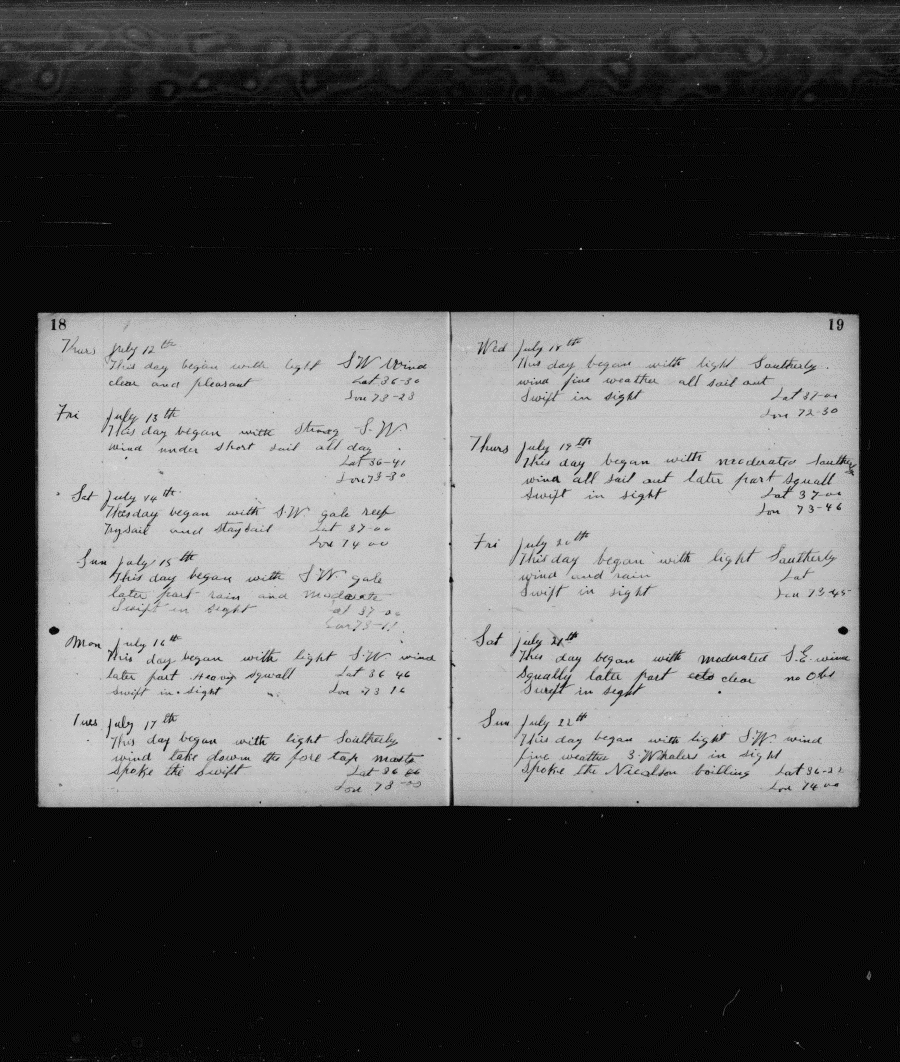 18
Thurs July 12th
This day began with light S W Wind
clear and pleasant Lat 36-30
Lon 73-23
Fri July 13th
This day began with strong S. W
wind under short sail all day
Lat 36-41
Lon 73-30
Sat July 14th
Thisday began with S.W gale reef
Trysail and Staysail Lat 37-00
Lon 74 00
Sun July 15th
This day began with S.W. gale
later part rain and Moderate
Swift in sight Lat 37-00
Lon 73-
Mon July 16th
This day began with light S.W. wind
later part Heavy squall Lat 36 46
swift in sight Lon 73 16
Tues July 17th
This day began with light Southerly
wind take down the fore top mast
Spoke the Swift Lat 36
Lon 73-00
19
Wed July 18th
This day began with light Southerly.
wind fine weather all sail out
Swift in sight Lat 37-00
Lon 72-30
Thurs July 19th
This day began with moderated Southerly
wind all sail out later part squall
Swift in sight Lat 37-00
Lon 73-46
Fri July 20th
This day began with light Southerly
wind and rain Lat
Swift in sight Lon 73-45
Sat July 21th
This day began with moderated S.E. wind
Squally later part clear no Obs
Swift in sight
Sun July 22th
This day began with light S.W. wind
fine weather 3 Whalers in sight
Spoke the Nicolson boilling Lat 36-32
Lon 74 00